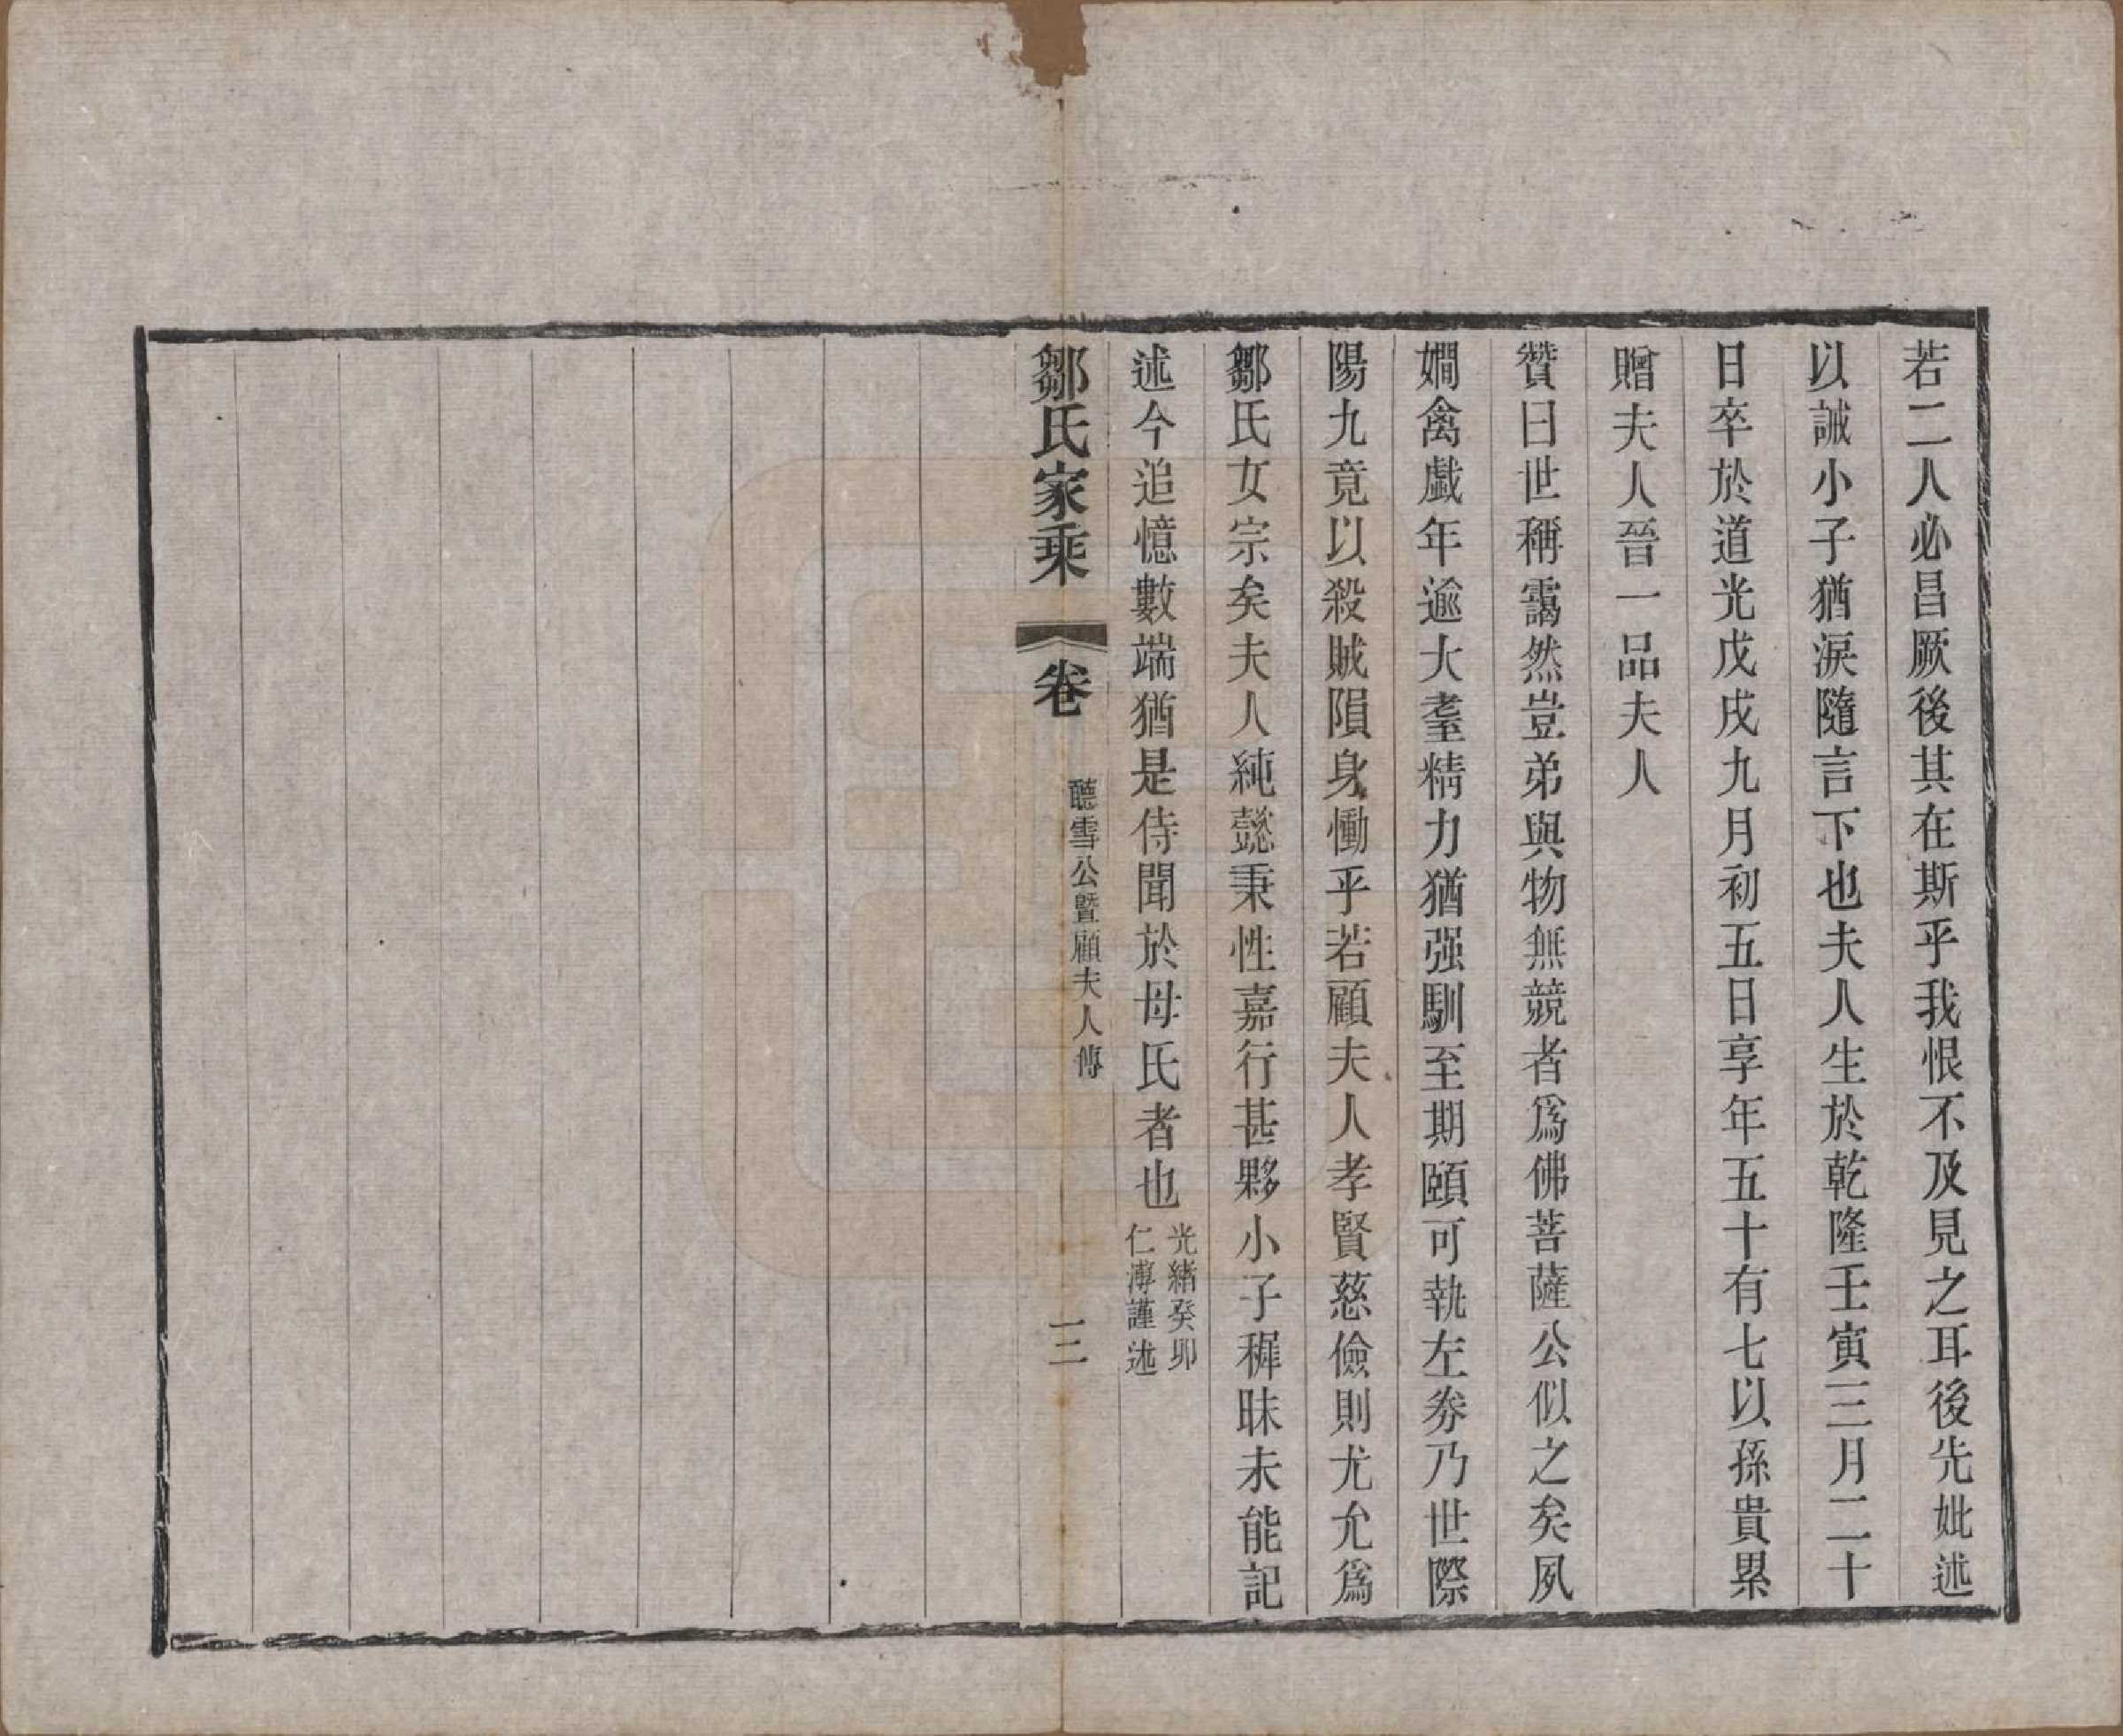 若二人必昌厥後其在斯乎我恨不及見之耳後先妣述
以誡小子猶淚隨言下也夫人生於乾隆壬寅三月二十
日卒於道光戊戌九月初五日享年五十有七以孫貴累
贈夫人晉一品夫人
贊曰世稱靄然豈弟與物無競者爲佛菩薩公似之矣夙
嫻禽戲年逾大耋精力猶强馴至期頤可執左劵乃世際
陽九竟以殺賊隕身慟乎若顧夫人孝賢慈儉則尤允爲
鄒氏女宗矣夫人純懿秉性嘉行甚夥小子穉昧未能記
述今追憶數端猶是侍聞於母氏者也光緒癸卯
仁溥謹述
鄒氏家乘 卷 聽雪公暨顧夫人傳 三